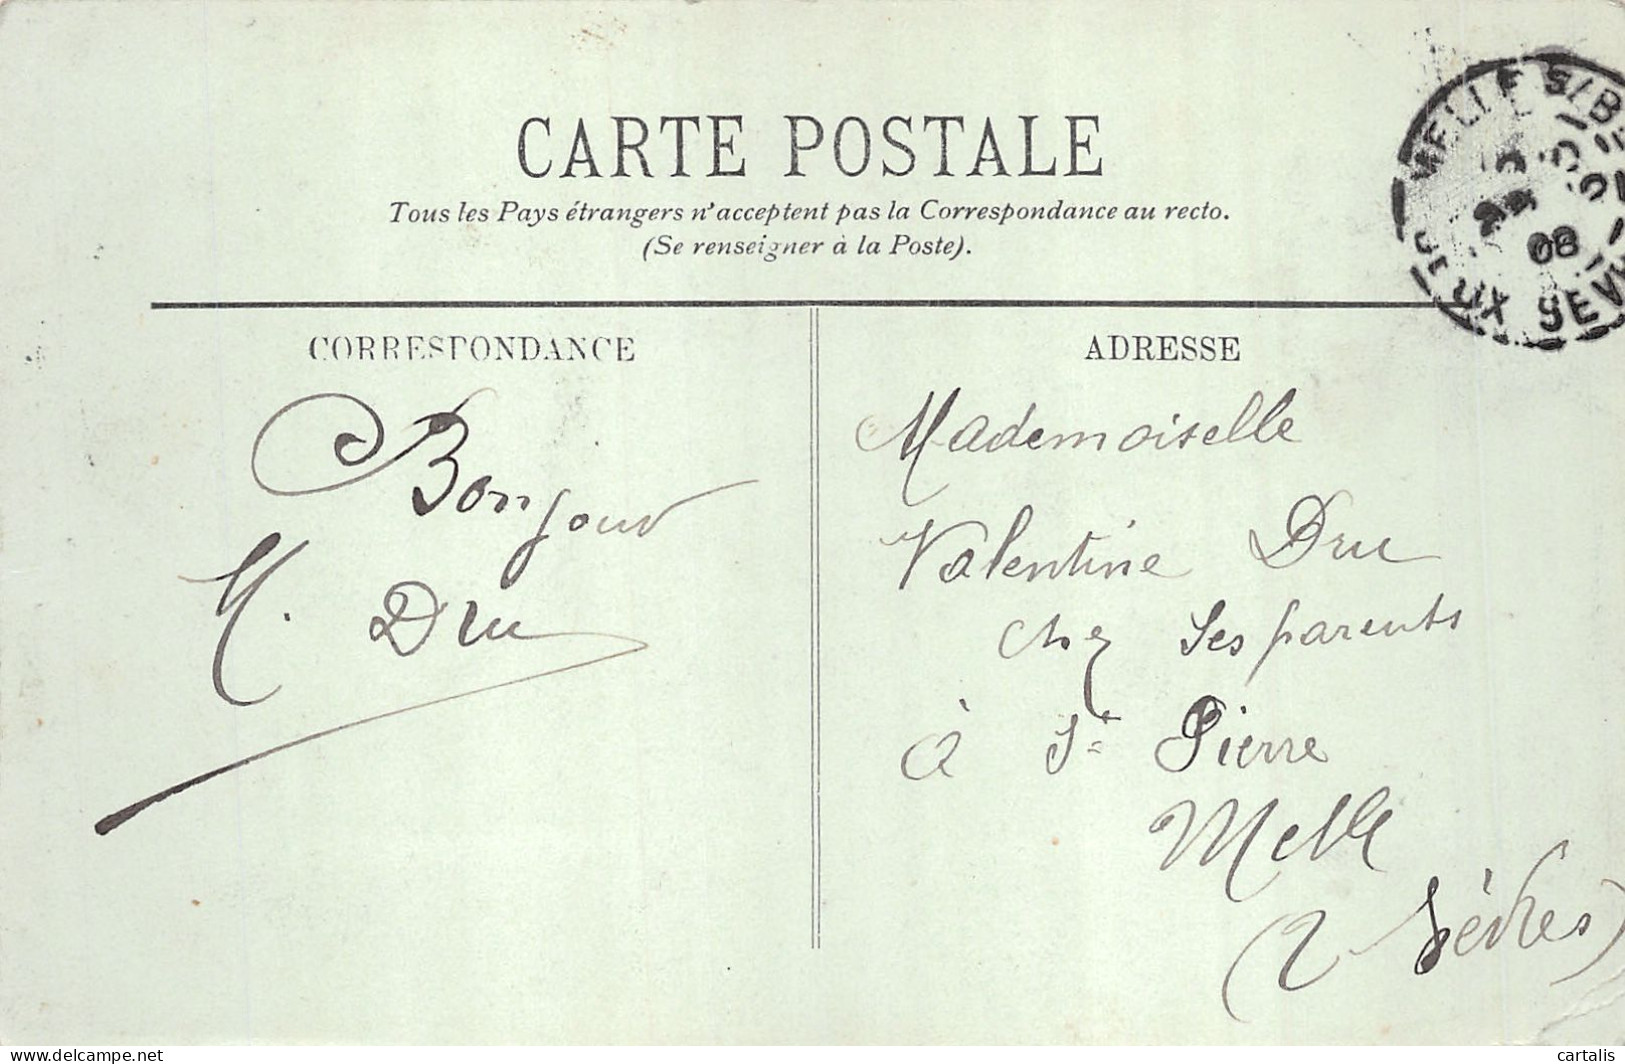 CARTE POSTALE
Tous les Pays étrangers n'acceptent pas la Correspondance au recto.
(Se renseigner à la Poste).
MELLE S/B
08
UX SEV
CORRESPONDANCE
Bonjour
M. Dru
ADRESSE
Mademoiselle
Valentine Dru
chez ses parents
à St Pierre
Melle
(2 Sèvres)
www.delcampe.net
cartalis